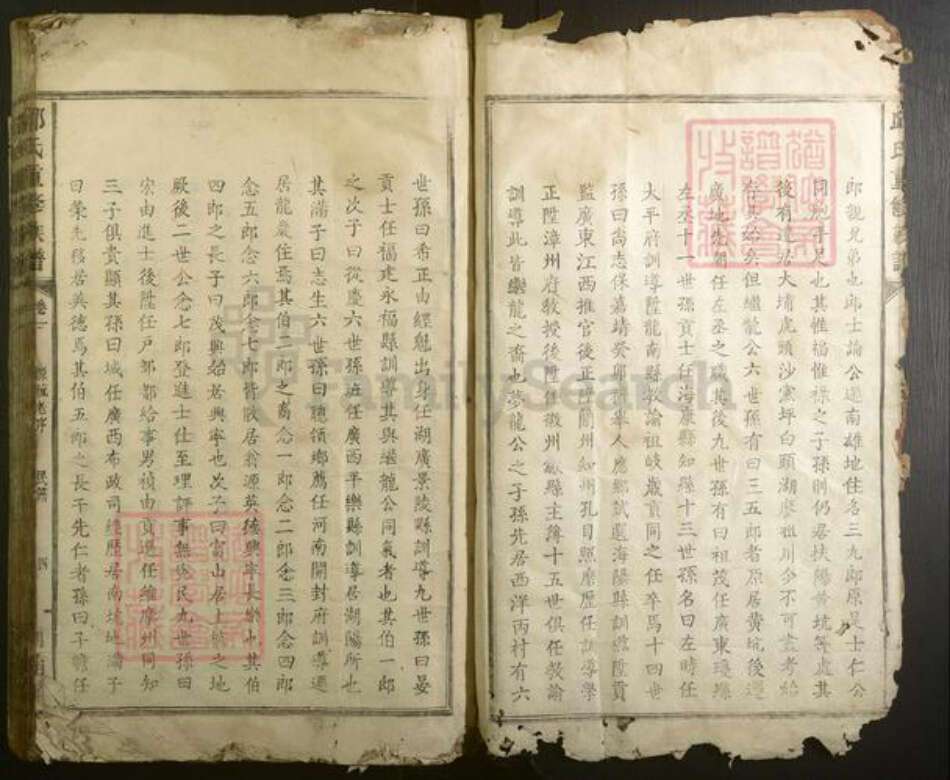 郎親兄弟也卽士論公遷南雄地住名三九郎原是士仁公
同胞手足也其惟福惟祿之子孫則仍居扶陽黃坑等處其
後有遷居大埔虎頭沙黨坪白頭湖廖祖川今不可盡考始
存其始矣但繼龍公六世孫有曰三五郎者原居黃坑後遷
廣地先曾任左丞之職其後九世孫有曰祖茂任廣東瓊縣
左丞十一世孫貢士任海康縣知縣十三世孫名曰左時任
太平府訓導陞龍南縣教諭祖岐歲貢同之任卒焉十四世
孫曰尚志保嘉靖癸卯科舉人應鄉試選海陽縣訓導陞貢
監廣東江西推官後正任蘭州知州孔目照磨歷任訓導學
正陞漳州府敎授後陞任徽州歙縣主簿十五世俱任教諭
訓導此皆繼龍之裔也夢龍公之子孫先居西洋丙村有六
世孫曰希正由經魁出身任湖廣景陵縣訓導九世孫曰晏
貢士任福建永福縣訓導其與繼龍公同氣者也其伯一郎
之次子曰從慶六世孫班任廣西平樂縣訓導居湖陽所也
其滿子曰志生六世孫曰聰領鄉薦任河南開封府訓導遷
居龍歲住焉其伯二郎之裔念一郎念二郎念三郎念四郎
念五郎念六郎念七郎皆散居翁源英德興寧長樂也其伯
四郎之長子曰茂興始居興寧也次子曰富山居上杭之地
厥後二世公念七郎登進士仕至理評事無後民九世孫曰
宗由進士後陞任戶部都給事男禎由貢選任維摩州同知
三子俱貴顯其孫曰城任廣西布政司經歷居南坑地滿子
曰榮先移居英德焉其伯五郎之長子先仁者孫曰子贍任
邱氏重修族譜
卷一
四
FamilySearch